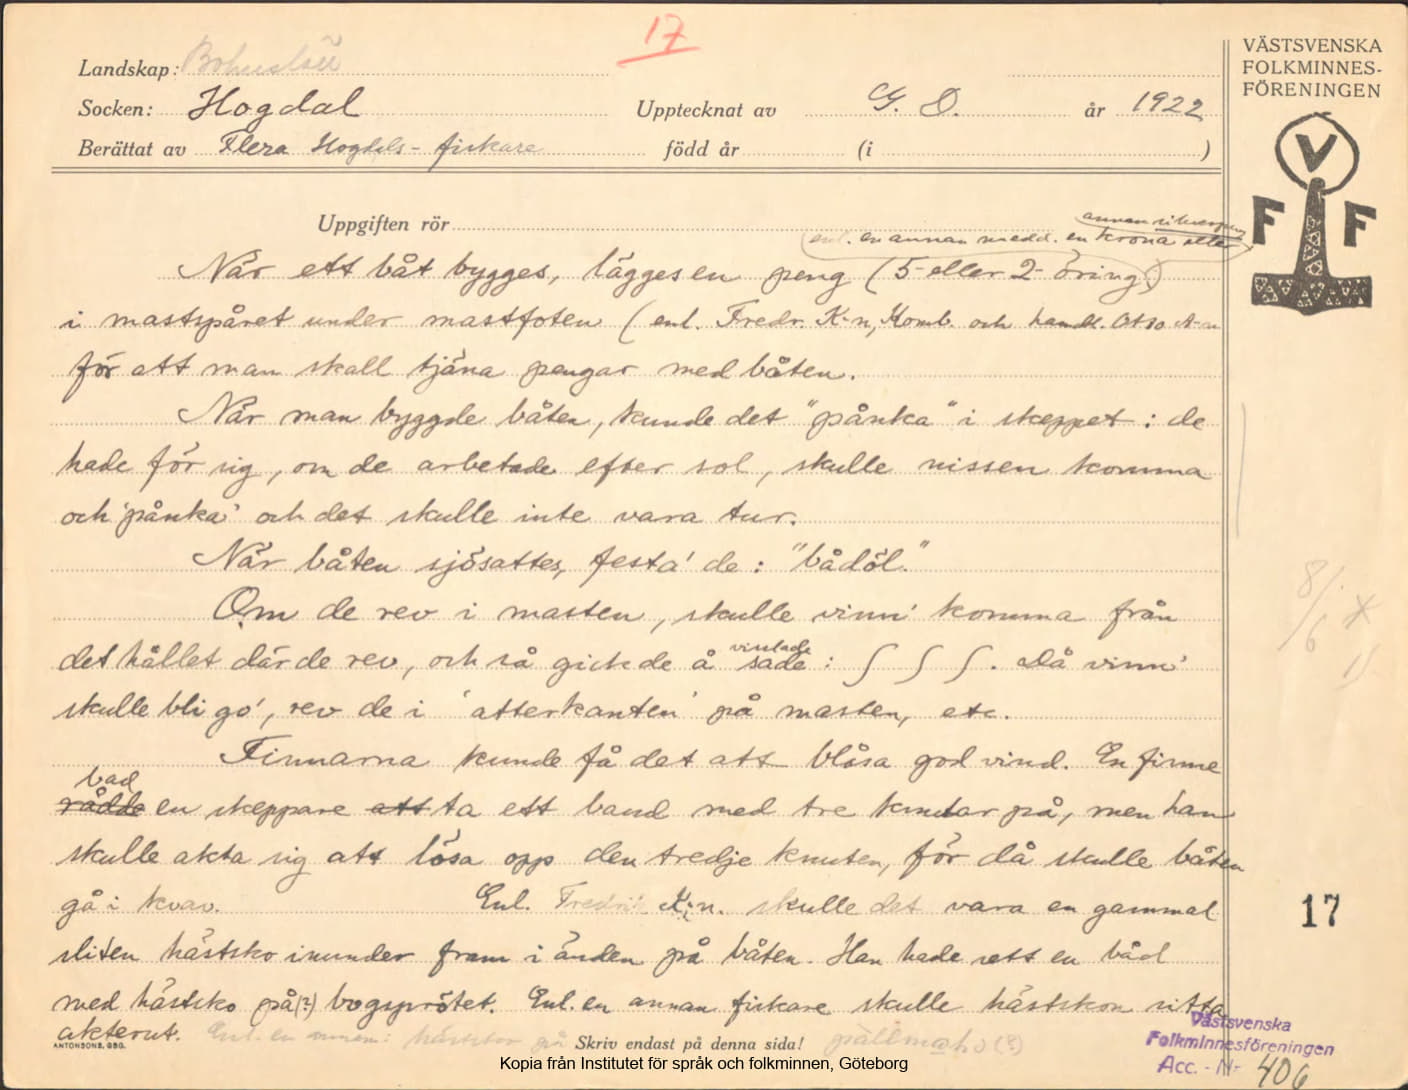 17
Landskap: Bohuslän
Socken: Hogdal
Upptecknat av G. D. år 1922
Berättat av Flera Hogdals-fiskare född år (i )
VÄSTSVENSKA
FOLKMINNES-
FÖRENINGEN
V
F F
Uppgiften rör
annan
enl. en annan medd. en krona eller
När ett båt bygges, lägges en peng (5- eller 2-öring)
i mastspåret under mastfoten (enl. Fredr. K-n, Komb. och handl. Otto A-n
för att man skall tjäna pengar med båten.
När man byggde båten, kunde det "pånka" i skeppet: de
hade för sig, om de arbetade efter sol, skulle nissen komma
och 'pånka' och det skulle inte vara tur.
När båten sjösattes, festa' de: "bådöl."
Om de rev i masten, skulle vinn' komma från
det hållet där de rev, och så gick de å visslade sade: ʃ ʃ ʃ. Då vinn'
skulle bli go', rev de i 'atterkanten' på masten, etc.
Finnarna kunde få det att blåsa god vind. En finne
bad
rådde en skeppare att ta ett band med tre knutar på, men han
skulle akta sig att lösa opp den tredje knuten, för då skulle båten
gå i kvav. Enl. Fredrik K-n. skulle det vara en gammal
sliten hästsko inunder fram i änden på båten. Han hade sett en båd
med hästsko på(?) bogsprötet. Enl. en annan fiskare skulle hästskon sitta
akterut. Enl. en annan: hästskor på
ANTONSONS, GBG.
Skriv endast på denna sida!
8/6
17
Västsvenska
Folkminnesföreningen
Acc. - Nr 406
Kopia från Institutet för språk och folkminnen, Göteborg